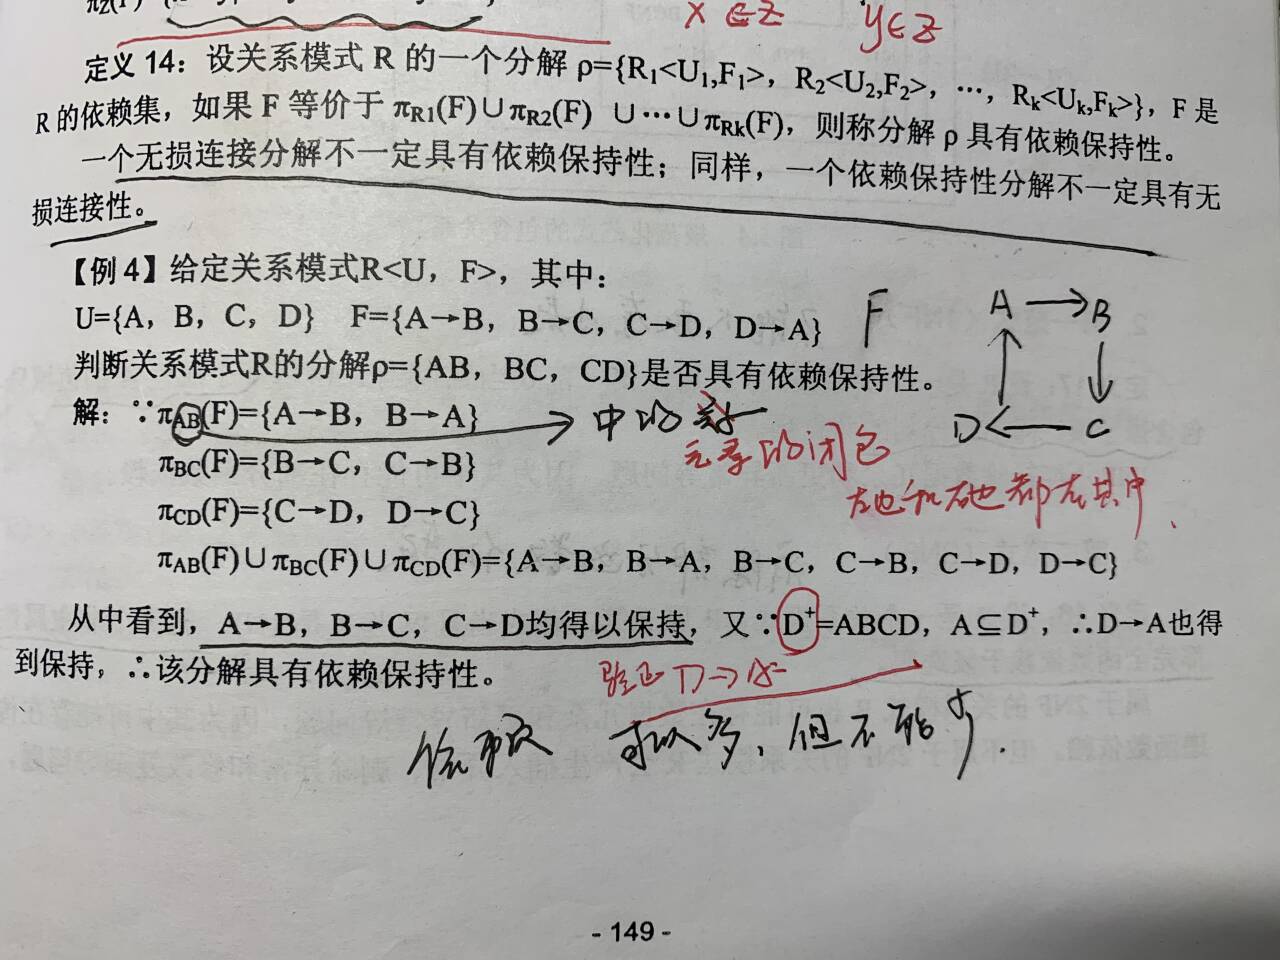 X ∈ Z y∈Z
定义 14：设关系模式 R 的一个分解 ρ={R₁<U₁,F₁>，R₂<U₂,F₂>，…，Rₖ<Uₖ,Fₖ>}，F 是
R 的依赖集，如果 F 等价于 πR1(F)∪πR2(F) ∪…∪πRk(F)，则称分解 ρ 具有依赖保持性。
一个无损连接分解不一定具有依赖保持性；同样，一个依赖保持性分解不一定具有无
损连接性。
【例 4】给定关系模式R<U，F>，其中：
U={A，B，C，D} F={A→B，B→C，C→D，D→A}
F
A → B
判断关系模式R的分解ρ={AB，BC，CD}是否具有依赖保持性。
D ← C
解：∵πAB(F)={A→B，B→A}
中的
元素的闭包
πBC(F)={B→C，C→B}
左边和右边都在其中
πCD(F)={C→D，D→C}
πAB(F)∪πBC(F)∪πCD(F)={A→B，B→A，B→C，C→B，C→D，D→C}
从中看到，A→B，B→C，C→D均得以保持，又∵D⁺=ABCD，A⊆D⁺，∴D→A也得
到保持，∴该分解具有依赖保持性。
验证 D→A
可以多，但不能少.
- 149 -